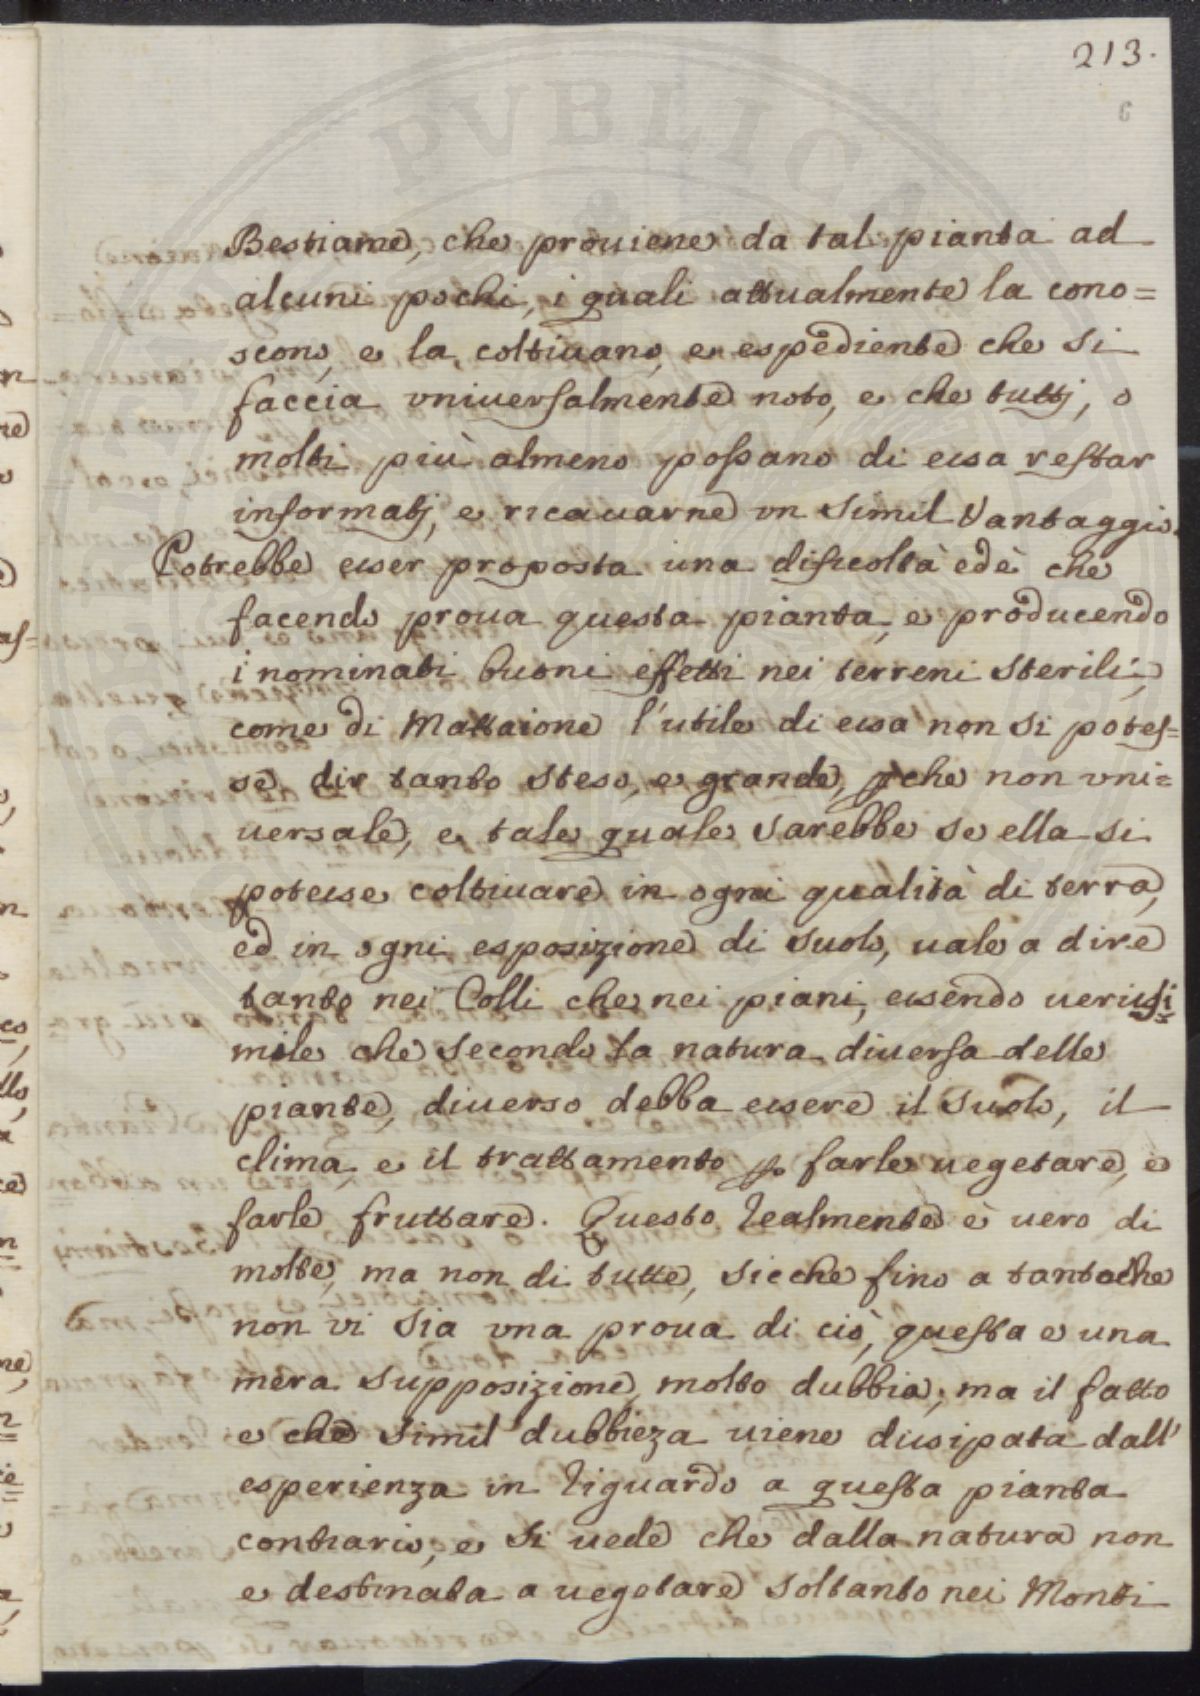 213.
6
PVBLICA
Bestiame, che prouiene da tal pianta ad
alcuni pochi, i quali attualmente la cono=
scono, e la coltiuano, e espediente che si
faccia vniuersalmente noto, e che tuttj, o
molti più almeno possano di essa restar
informatj, e ricauarne vn simil Vantaggio.
Potrebbe esser proposta una dificoltà ed è che
facendo proua questa pianta, e producendo
i nominati buoni effetti nei terreni sterili,
come di Mattaione l'utile di essa non si potes=
se dir tanto steso, e grande, pche non vni=
uersale, e tale quale sarebbe se ella si
potesse coltiuare in ogni qualità di terra,
ed in ogni esposizione di suolo, uale a dire
tanto nei Colli che nei piani, essendo uerisi
mile che secondo la natura diuersa delle
piante, diuerso debba essere il suolo, il
clima, e il trattamento p farle uegetare, e
farle fruttare. Questo realmente è uero di
molte, ma non di tutte, sicche fino a tantoche
non vi sia vna proua di ciò, questa e una
mera supposizione molto dubbia; ma il fatto
e che simil dubbieza uiene dissipata dall'
esperienza in riguardo a questa pianta
contrario, e si uede che dalla natura non
e destinata a uegetare soltanto nei Monti